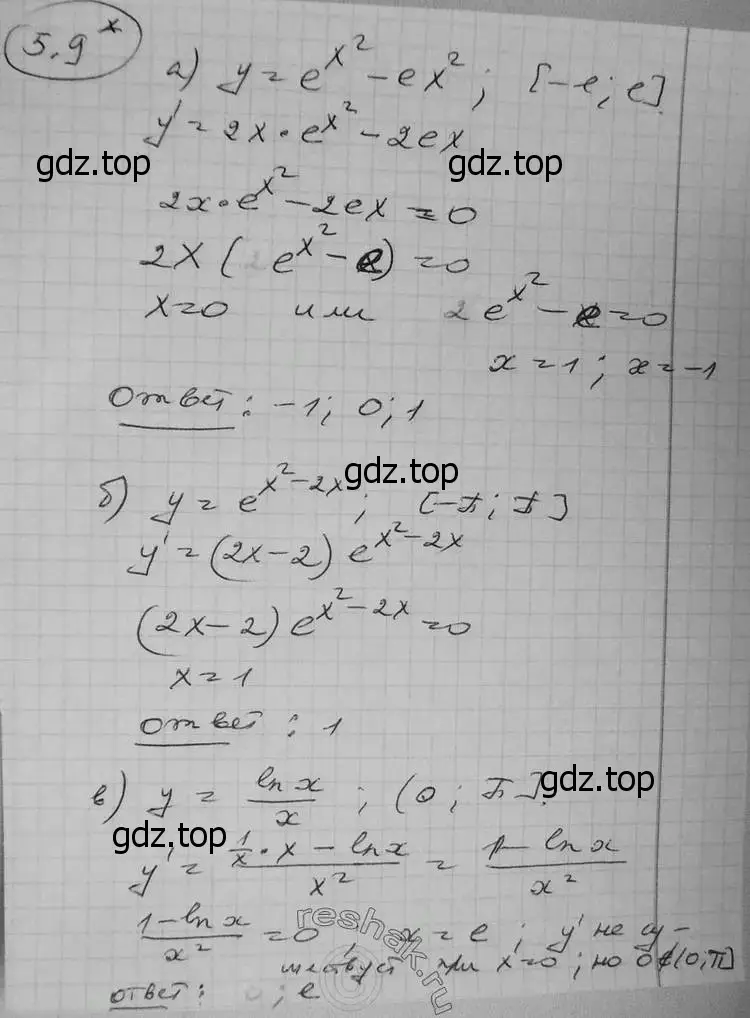 5.9*
а) y = e^{x^2} - ex^2; [-e; e]
y' = 2x · e^{x^2} - 2ex
gdz.top gdz.top
2x · e^{x^2} - 2ex = 0
2x(e^{x^2} - e) = 0
x = 0 или e^{x^2} - e = 0
x = 1; x = -1
Ответ: -1; 0; 1
gdz.top
б) y = e^{x^2-2x}; [-π; π]
y' = (2x-2) e^{x^2-2x}
(2x-2) e^{x^2-2x} = 0
x = 1
ответ: 1
gdz.top
в) y = \frac{ln x}{x}; (0; π].
gdz.top
y' = \frac{\frac{1}{x} · x - ln x}{x^2} = \frac{1 - ln x}{x^2}
\frac{1-ln x}{x^2} = 0, x = e; y' не су-
ществует при x=0; но 0∉(0;π]
ответ: e
reshak.ru